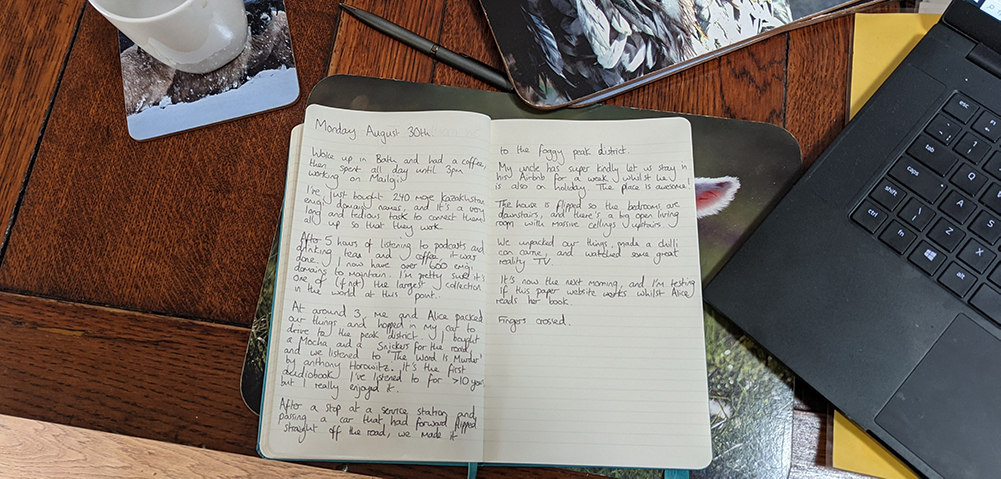 Monday August 30th
Woke up in Bath and had a coffee,
then spent all day until 3pm
working on Mailoji.
I've just bought 240 more Kazakhstan
emoji domain names, and it's a very
long and tedious task to connect them
all up so that they work.
After 5 hours of listening to podcasts and
drinking teas and coffee, it was
done. I now have over 600 emoji
domains to maintain. I'm pretty sure it's
one of (if not) the largest collection
in the world at this point.
At around 3, me and Alice packed
our things and hopped in my car to
drive to the peak district. I bought
a Mocha and a Snickers for the road,
and we listened to 'The Word Is Murder'
by anthony Horowitz. It's the first
audiobook I've listened to for >10 years
but I really enjoyed it.
After a stop at a service station and
passing a car that had forward flipped
straight off the road, we made it
to the foggy peak district.
My uncle has super kindly let us stay in
his Airbnb for a week whilst he
is also on holiday. The place is awesome!
The house is flipped so the bedrooms are
downstairs, and there's a big open living
room with massive ceilings upstairs.
We unpacked our things, made a chilli
con carne, and watched some great
reality TV.
It's now the next morning, and I'm testing
if this paper website works whilst Alice
reads her book.
Fingers crossed.
esc
tab
caps
shift
ctrl
fn
alt
1
Q
A
Z
W
S
X